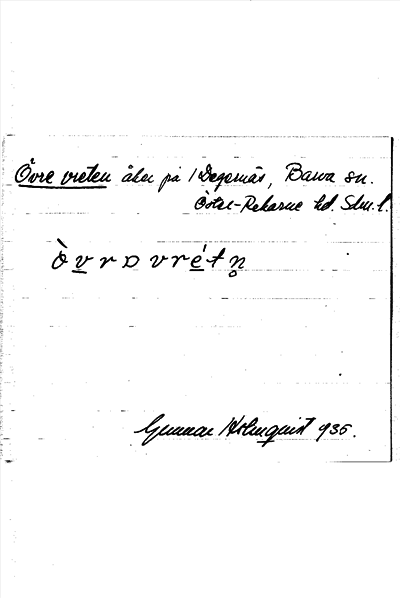 Övre vreten åker på 1 Degernäs, Barva sn.
Öster-Rekarne hd. Sdm. l.
ò̀v̲rɒ vré̲tn̥
Gunnar Holmquist 935.